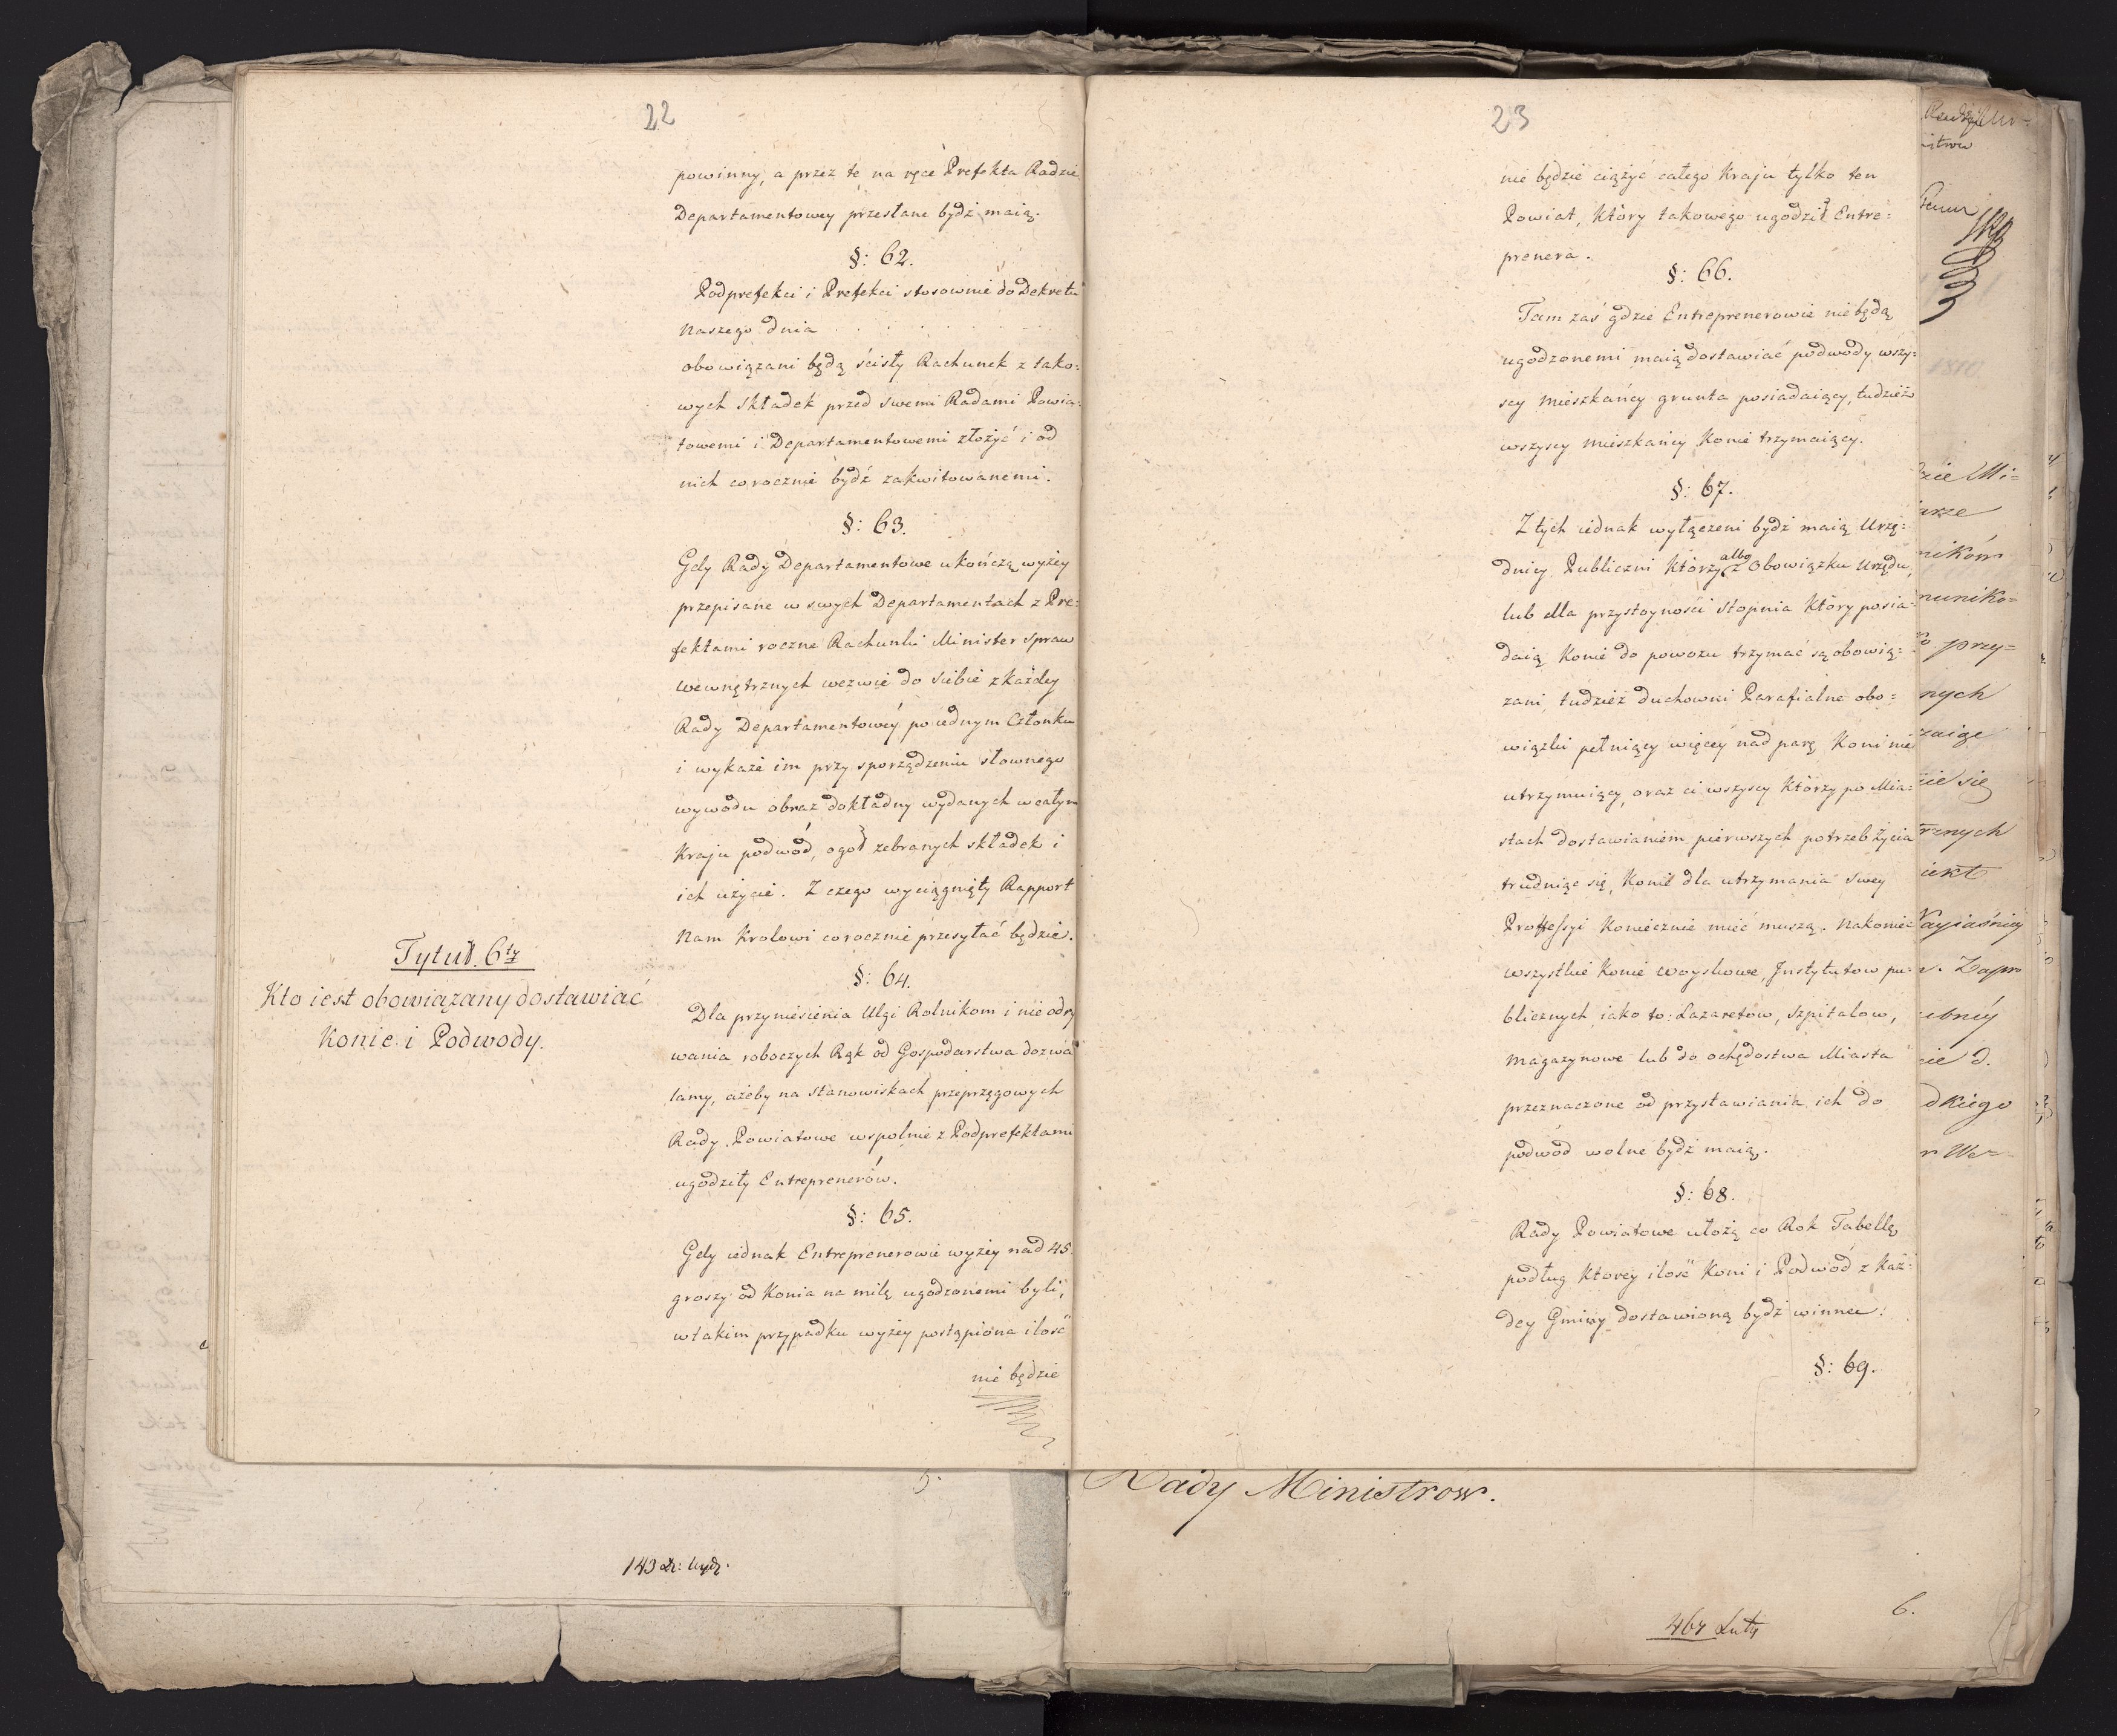 22
powinny, a przez te na ręce Prefekta Radzie
Departamentowey przesłane bydź maią.
§: 62.
Podprefekci i Prefekci stosownie do Dekretu
Naszego dnia . . . . . .
obowiązani będą ścisły Rachunek z tako=
wych składek przed swemi Radami Powia=
towemi i Departamentowemi złożyć i od
nich corocznie bydź zakwitowanemi.
§: 63.
Gdy Rady Departamentowe ukończą wyżey
przepisane w swych Departamentach z Pre=
fektami roczne Rachunki Minister spraw
wewnętrznych wezwie do siebie z każdey
Rady Departamentowey po iednym Członku
i wykaże im przy sporządzeniu słownego
wywodu obraz dokładny wydanych w całym
Kraju podwód, ogoł zebranych składek i
ich użycie. Z czego wyciągnięty Rapport
Nam Krolowi corocznie przesyłać będzie.
Tytuł 6ty
Kto iest obowiązany dostawiać
Konie i Podwody.
§: 64.
Dla przyniesienia Ulgi Rolnikom i nie odry
wania roboczych Rąk od Gospodarstwa dozwa
lamy, ażeby na stanowiskach przeprzęgowych
Rady Powiatowe wspolnie z Podprefektami
ugodziły Entreprenerów.
§: 65.
Gdy iednak Entreprenerowie wyżey nad 45
groszy od Konia na milę ugodzonemi byli,
w takim przypadku wyżey postąpiona ilość
nie będzie
143 Dz: Wydz.
23
nie będzie ciążyć całego Kraju tylko ten
Powiat, Który takowego ugodził Entre=
prenera.
§: 66.
Tam zaś gdzie Entreprenerowie nie będą
ugodzonemi maią dostawiać podwody wszy=
scy Mieszkańcy grunta posiadaiący, tudzież
wszyscy Mieszkańcy Konie trzymaiący.
§: 67.
Z tych iednak wyłączeni bydź maią Urzę=
dnicy Publiczni Którzy albo z Obowiązku Urzędu,
lub dla przystoyności stopnia Który posia=
daią Konie do powozu trzymać są obowią=
zani, tudzież duchowni Parafialne obo=
wiązki pełniący więcey nad parę Koni nie
utrzymuiący, oraz ci wszyscy Którzy po Mia=
stach dostawianiem pierwszych potrzeb życia
trudniąc się, Konie dla utrzymania swey
Proffessyi Koniecznie mieć muszą. Nakoniec
wszystkie Konie woyskowe, Instytutow pu=
blicznych iako to: Lazaretow, szpitalow,
Magazynowe lub do ochędostwa Miasta
przeznaczone od przystawiania ich do
podwód wolne bydź maią.
§: 68.
Rady Powiatowe ułożą co Rok Tabellę
podług Ktorey ilość Koni i Podwód z Każ=
dey Gminy dostawioną bydź winna.
§: 69.
Rady Ministrow.
464 Luty
6.